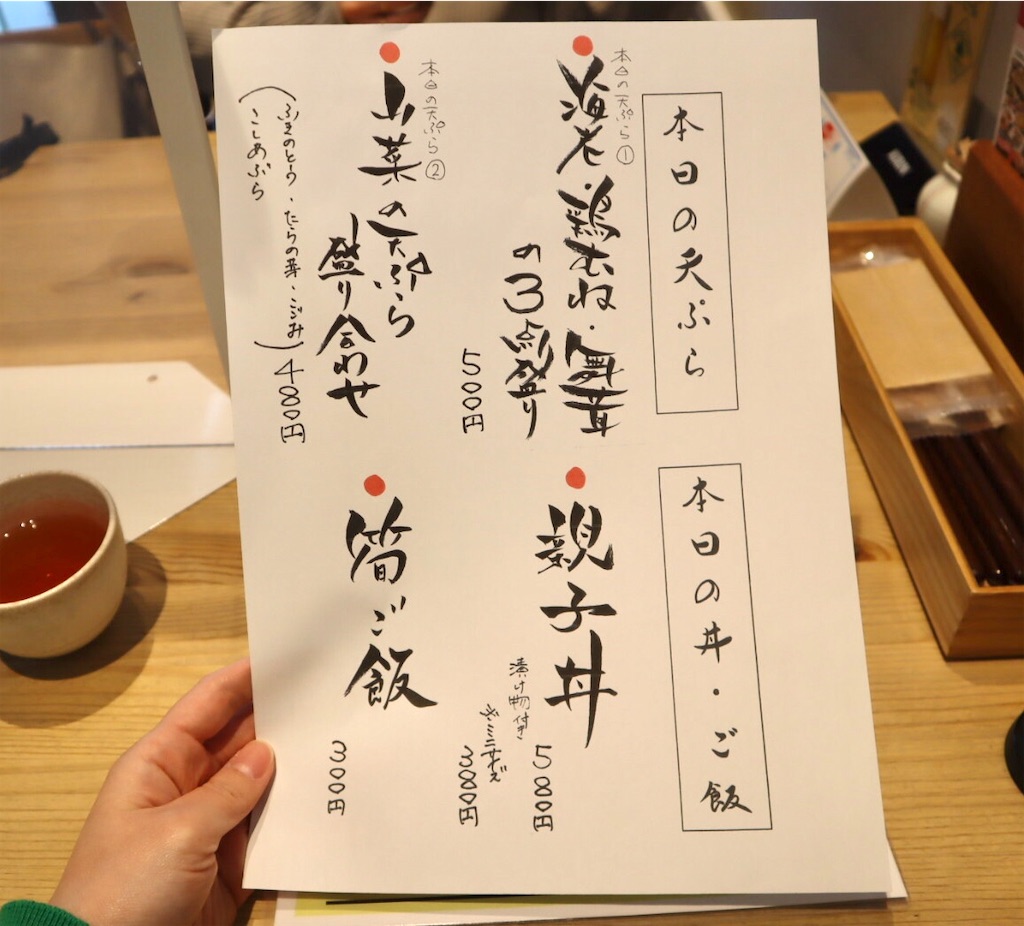 本日の天ぷら
本日の天ぷら①
海老・鶏むね・舞茸
の3点盛り
500円
本日の天ぷら②
山菜の天ぷら
盛り合わせ
(ふきのとう・たらの芽・こごみ
こしあぶら)
480円
本日の丼・ご飯
親子丼
漬け物付き
580円
ミニサイズ
380円
筍ご飯
300円